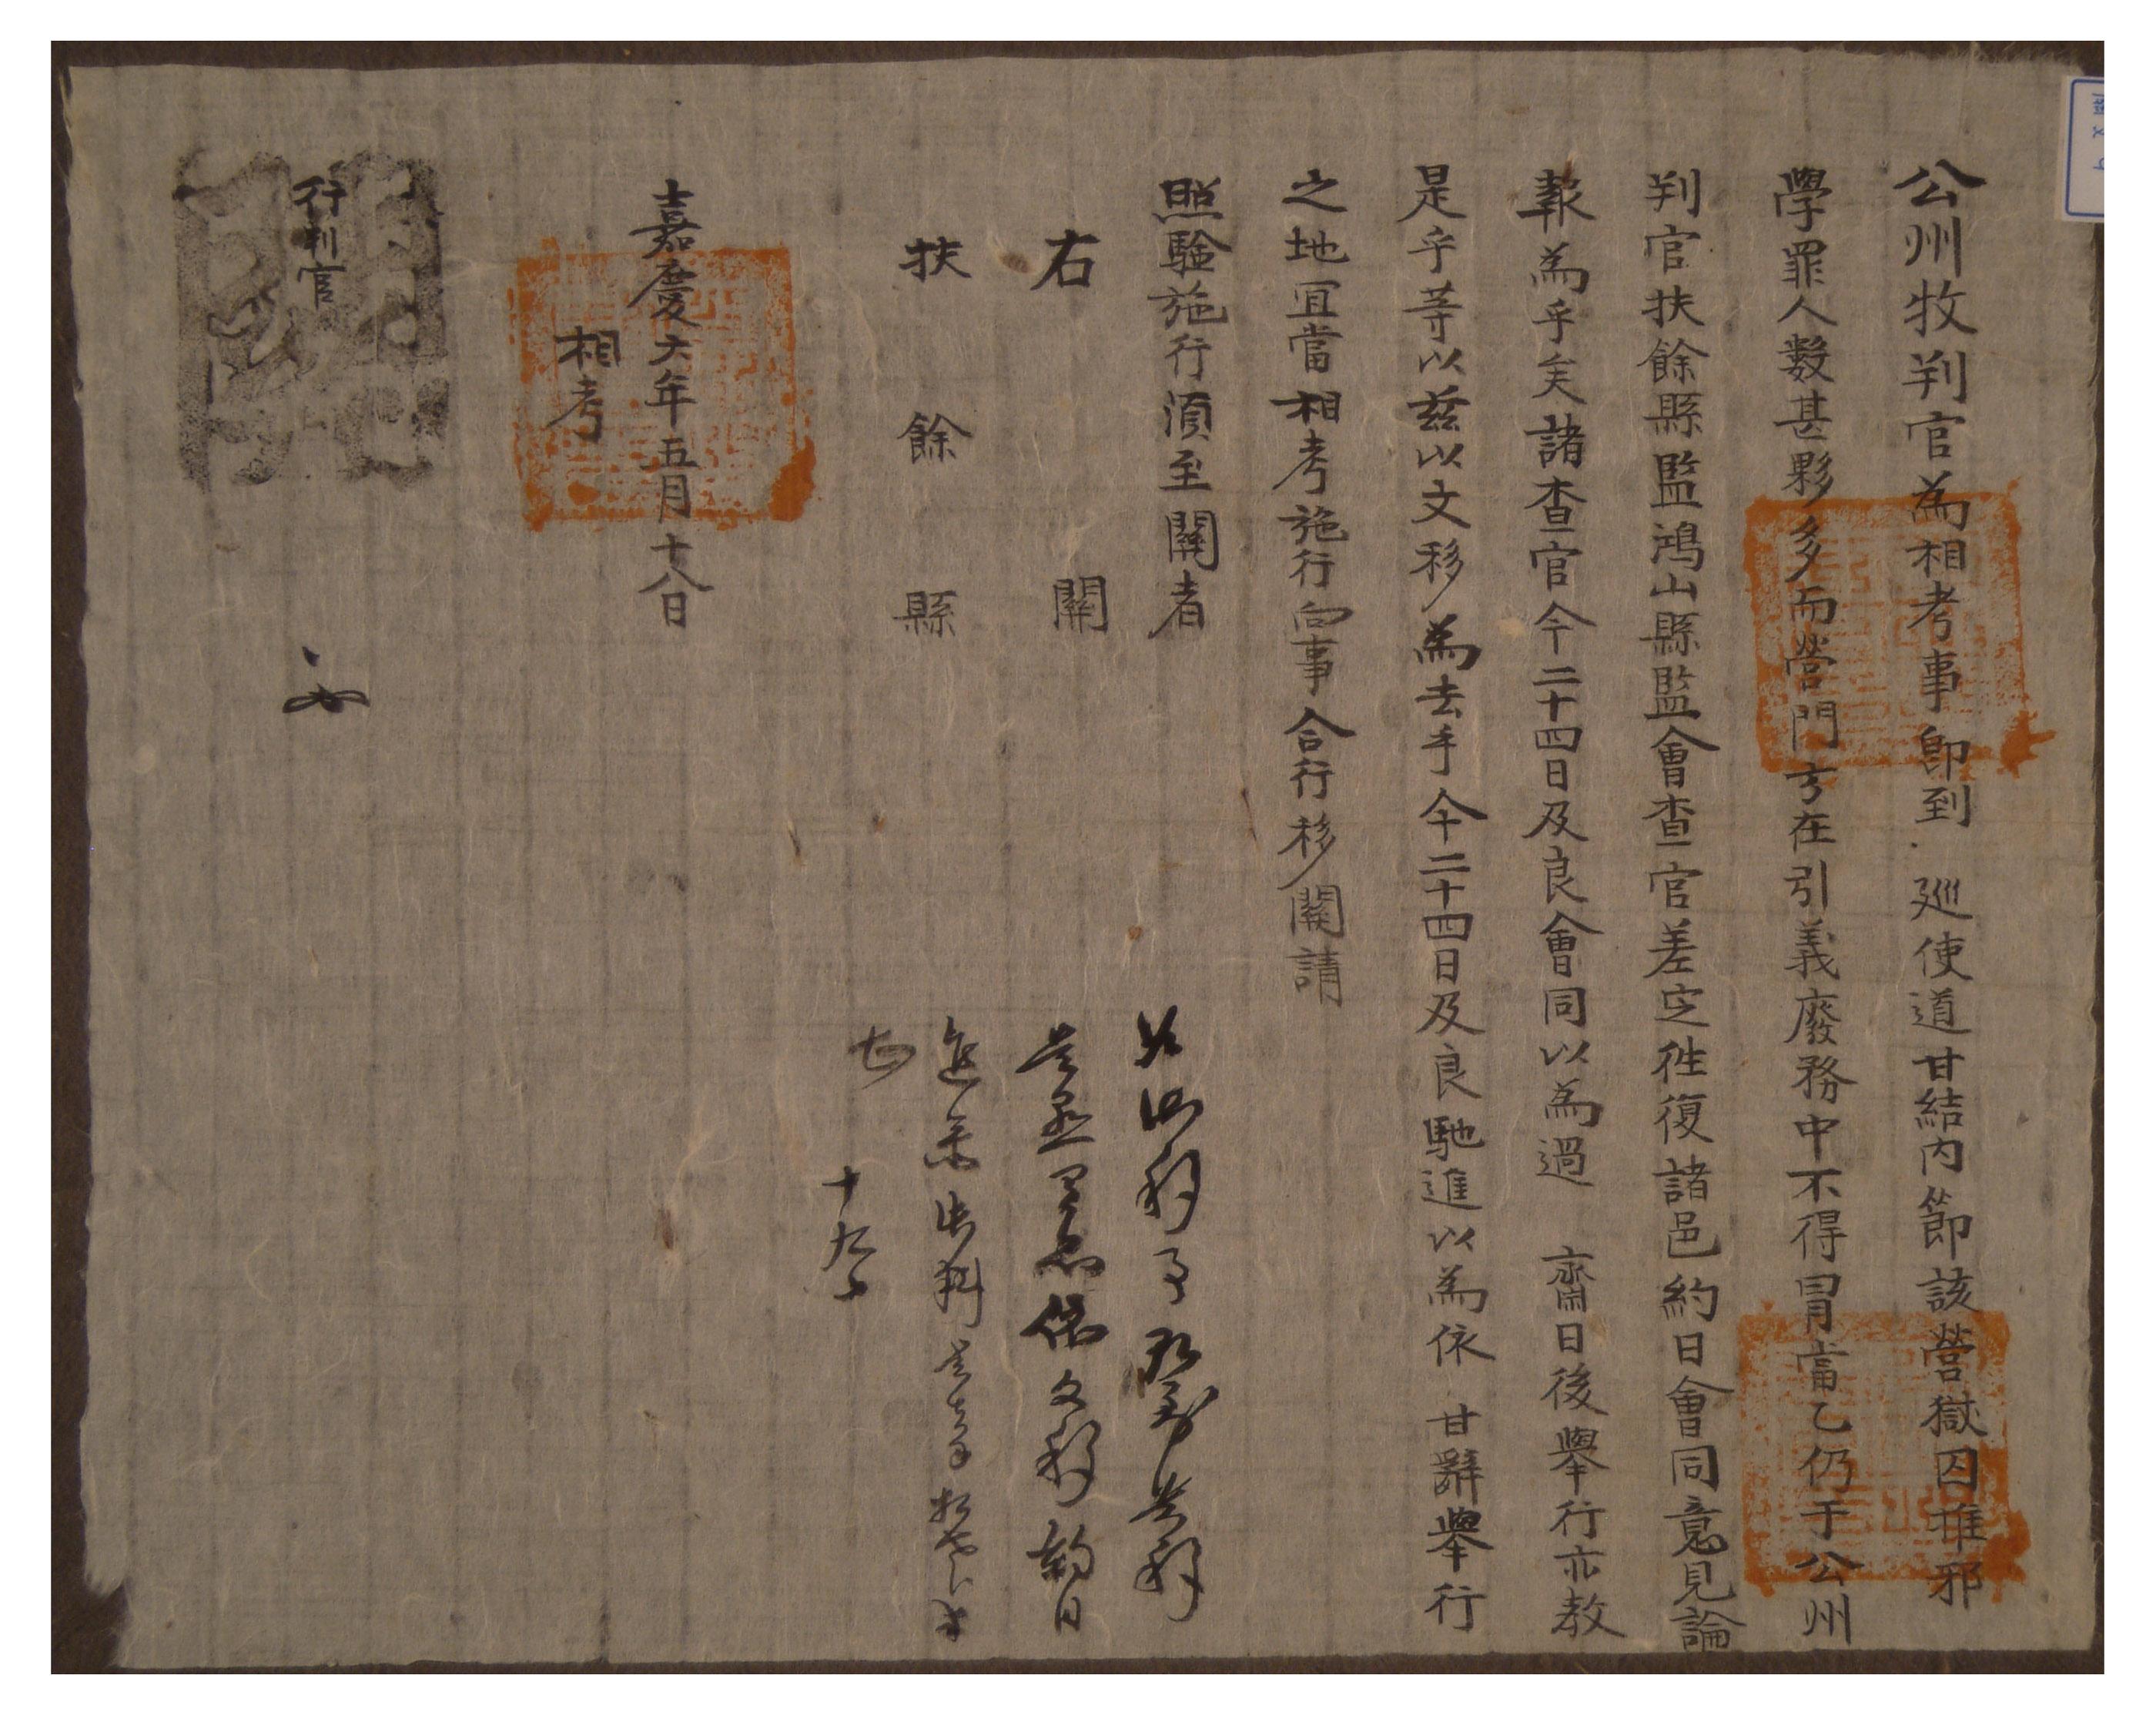 公州牧判官爲相考事卽到 巡使道甘結內節該營獄囚推邪
學罪人數甚夥多而營門方在引義廢務中不得冒當乙仍于公州
判官扶餘縣監鴻山縣監會查官差定往復諸邑約日會同意見論
報爲乎矣諸查官今二十四日及良會同以爲過 齋日後擧行亦敎
是乎等以玆以文移爲去乎今二十四日及良馳進以爲依 甘辭擧行
之地冝當相考施行向事合行移關請
照驗施行湏至關者
右 關
扶 餘 縣
嘉慶六年五月十八日
相考
行判官
文移 約日
十九